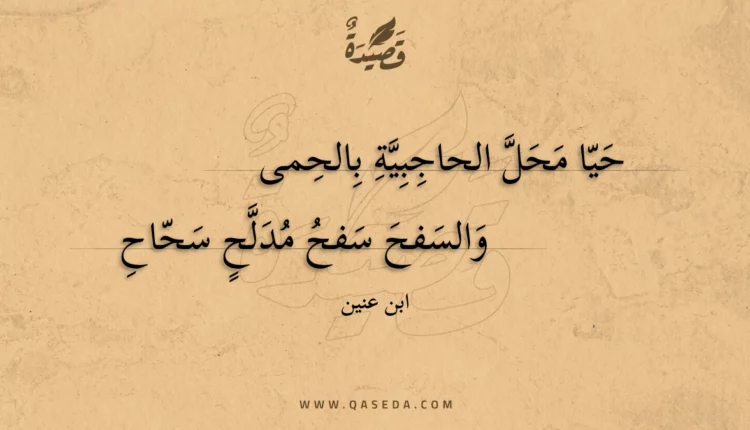 قَصيدَةٌ
حَيّا مَحَلَّ الحاجِبِيَّةِ بِالحِمى
وَالسَفحَ سَفحُ مُدَلَّحٍ سَحّاحِ
ابن عنين
WWW.QASEDA.COM